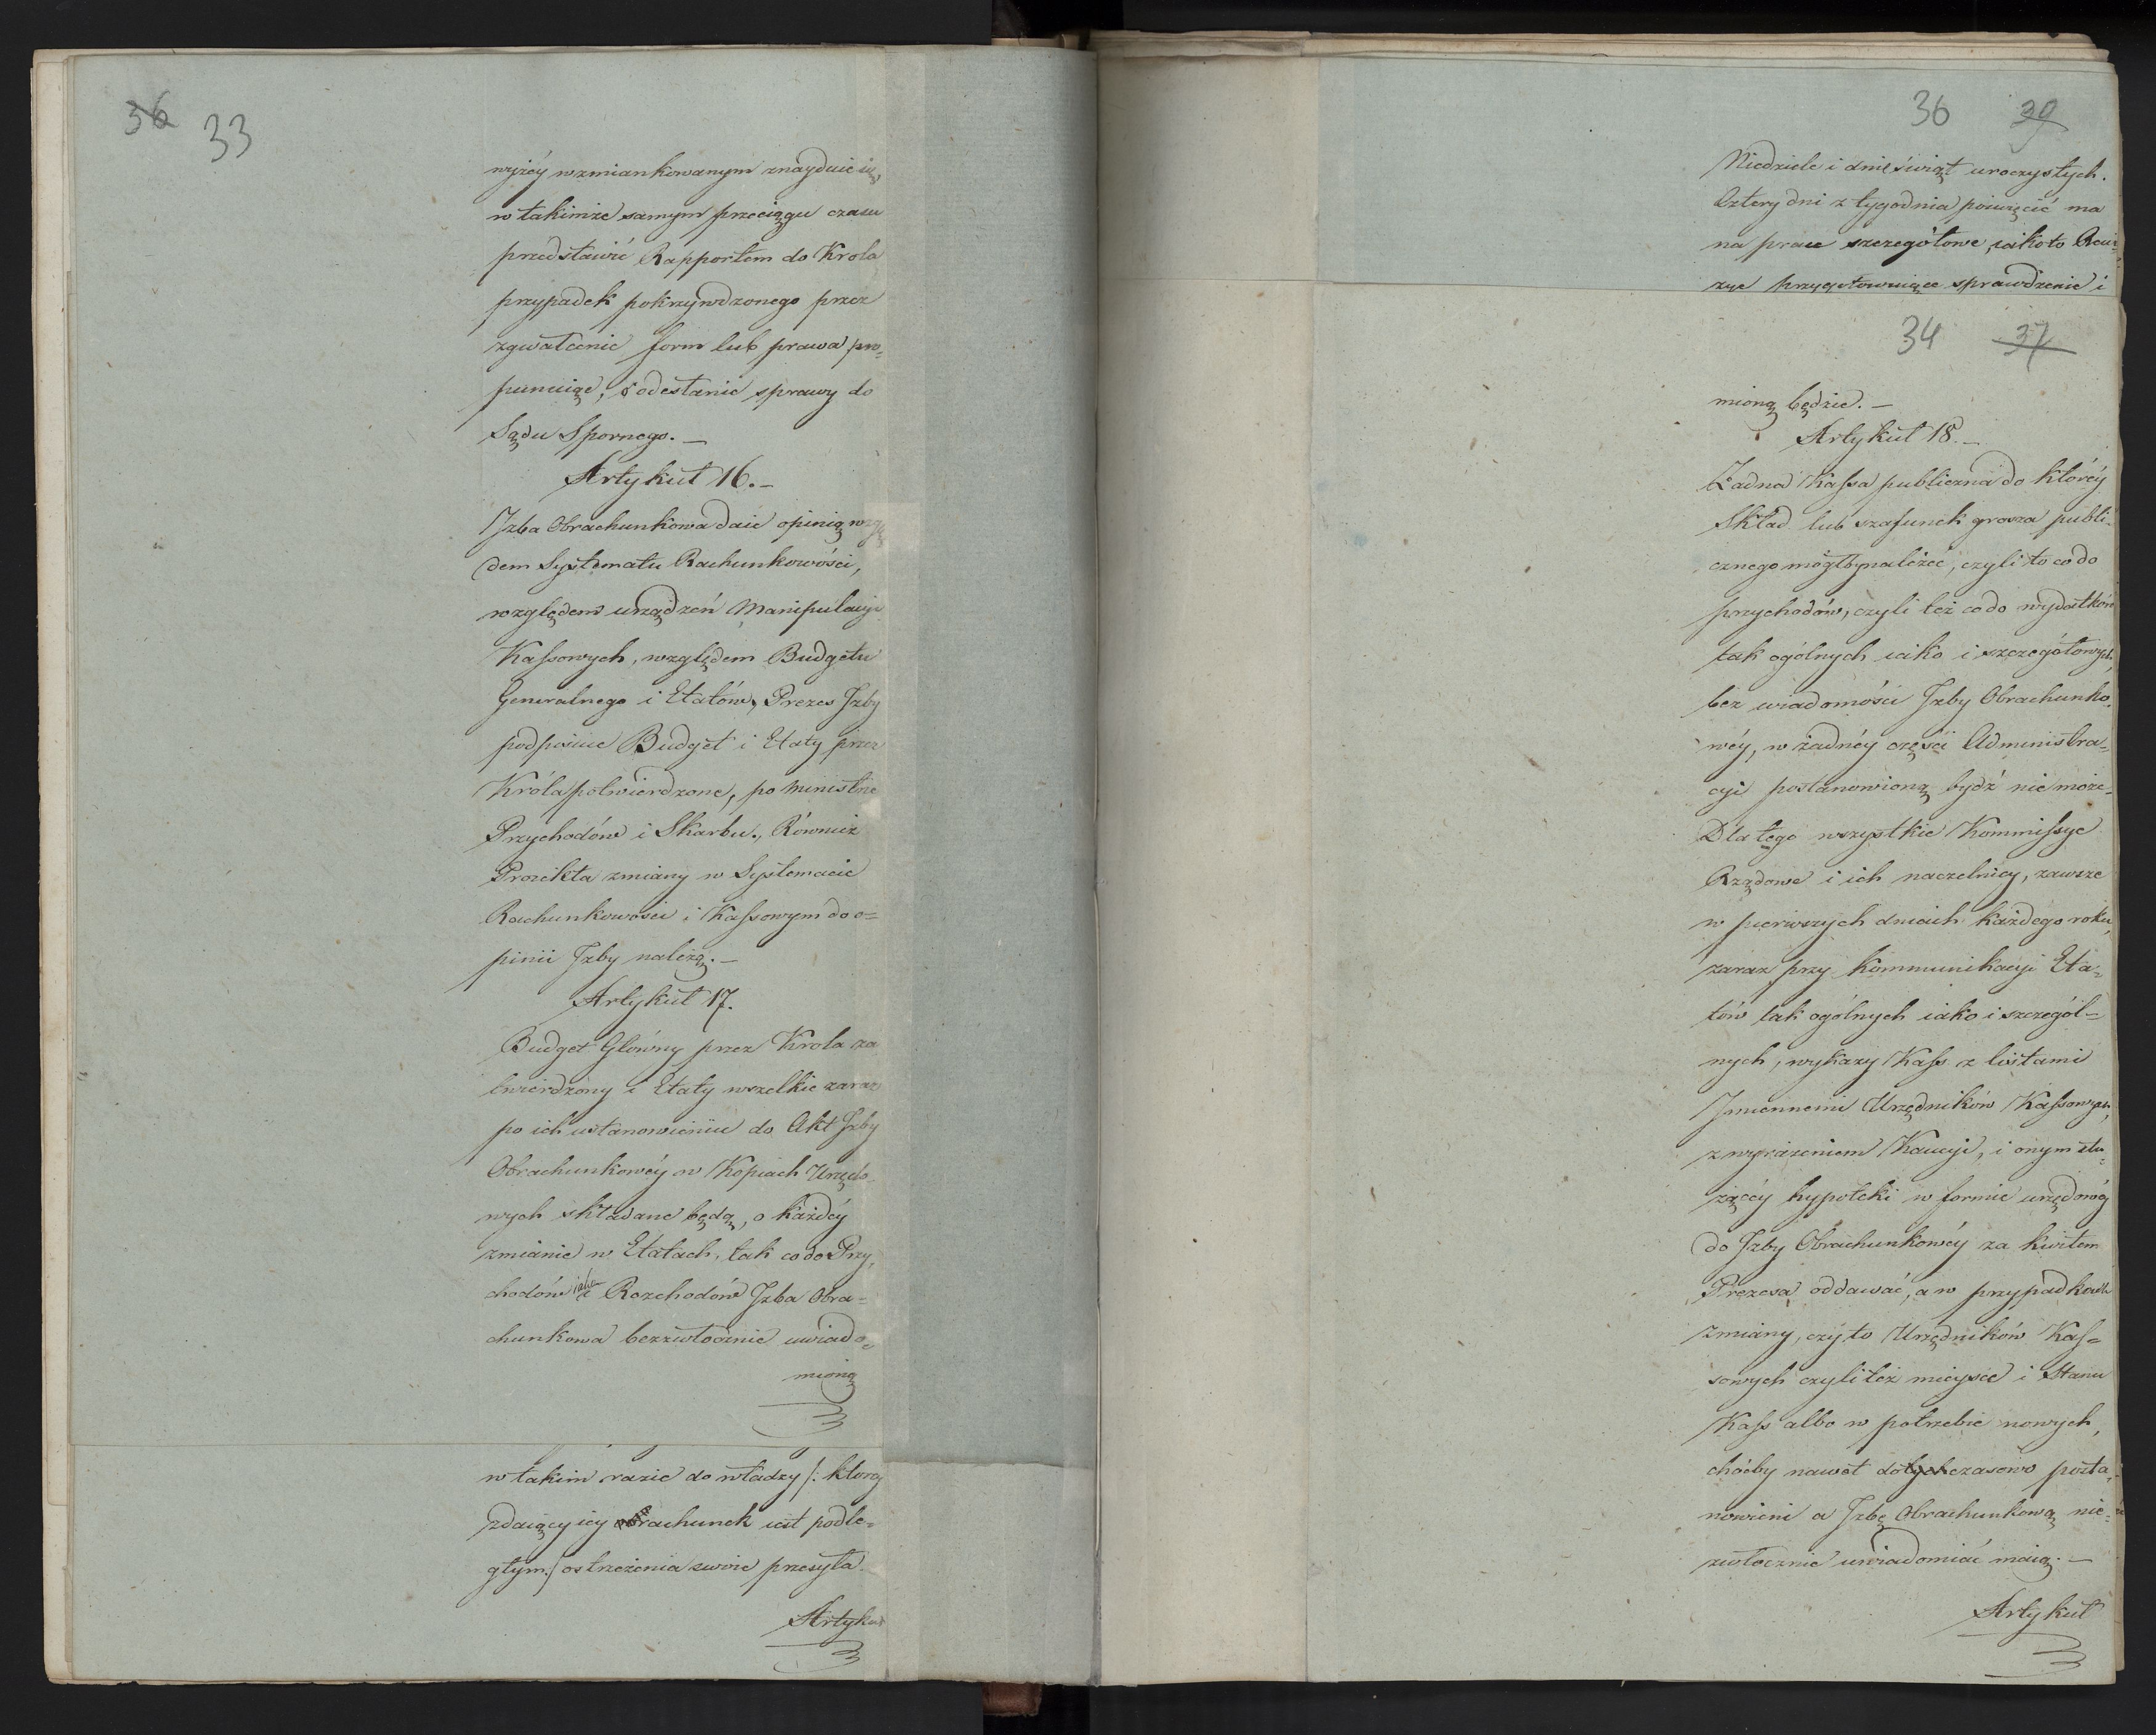 36 33
wyżéy wzmiankowanym znayduie się,
w takimże samym przeciągu czasu
przedstawić Rapportem do Krola
przypadek pokrzywdzonego przez
zgwałcenie form lub prawa pro-
ponuiąc, odesłanie sprawy do
Sądu Spornego. —
Artykuł 16. —
Jzba Obrachunkowa daie opinią wzglę
dem Systematu Rachunkowości,
względem urządzeń Manipulacyi
Kassowych, względem Budgetu
Generalnego i Etatów, Prezes Jzby
podpisuie Budget i Etaty przez
Króla potwierdzone, po Ministrze
Przychodów i Skarbu., Również
Proiekta zmiany w Systemacie
Rachunkowości i Kassowym do o=
pinii Jzby należą. —
Artykuł 17.
Budget Główny przez Krola za
twierdzony i Etaty wszelkie zaraz
po ich ustanowieniu do Akt Jzby
Obrachunkowéy w Kopiach Urzędo
wych składane będą, o każdéy
zmianie w Etatach, tak co do Przy,
chodów iako i Rozchodów Jzba Obra=
chunkowa bezzwłocznie uwiado=
mioną
w takim razie do władzy /: ktorey
zdaiący iey obrachunek iest podle=
głym :/ ostrzeżenia swoie przesyła.
Artykuł
36 39
Niedziele i dnie świąt uroczystych.
Cztery dni z tygodnia poświęcić ma
na prace szczegółowe, iakoto Rewi-
zye przygotowuiące sprawdzenie i
34 37
mioną będzie. —
Artykuł 18. —
Żadna Kassa publiczna do któréy
Skład lub szafunek grosza publi-
cznego mógłby należeć, czyli to co do
przychodów, czyli też co do wydatków
tak ogólnych iako i szczegółowych,
bez wiadomości Jzby Obrachunko-
wéy, w żadnéy części Administra-
cyi postanowioną bydź nie może-
Dla tego wszystkie Kommissye
Rządowe i ich naczelnicy, zawsze
w pierwszych dniach każdego roku,
zaraz przy kommunikacyi Eta-
tów tak ogólnych iako i szczegól-
nych, wykazy Kass z listami
Jmiennemi Urzędników Kassowych,
z wyrażeniem Kaucyi, i onym słu-
żącéy hypoteki w formie urzędowéy
do Jzby Obrachunkowéy za kwitem
Prezesa oddawać, a w przypadkach
zmiany, czyto Urzędników Kas=
sowych czyli też mieysce i Stanu
Kass albo w potrzebie nowych,
choćby nawet dotychczasowo posta-
nowieni a Jzbę Obrachunkową nie-
zwłocznie uwiadomiać maią. —
Artykuł